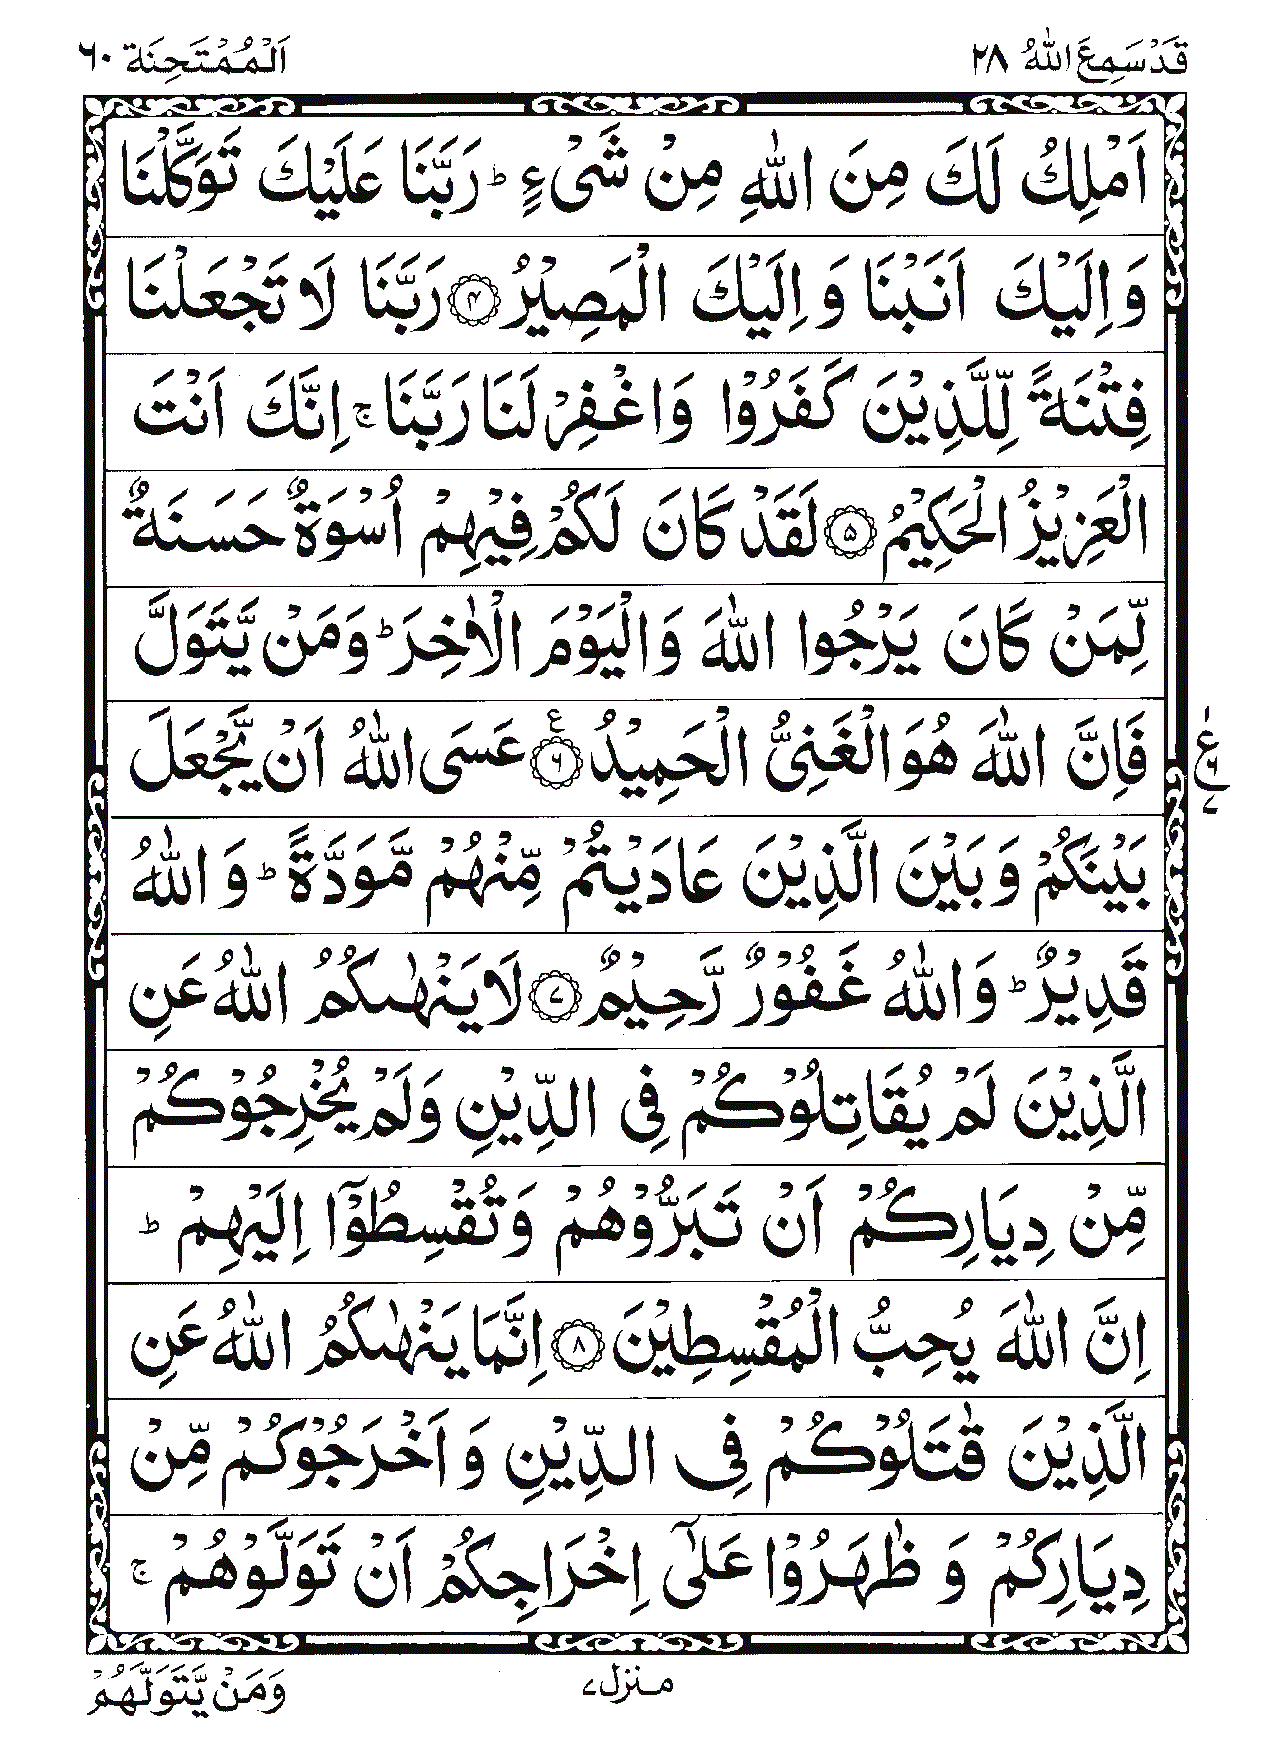 قَدْ سَمِعَ اللّٰهُ ٢٨
اَلْمُمْتَحِنَة ٦٠
اَمْلِكُ لَكَ مِنَ اللّٰهِ مِنْ شَیْءٍ ؕ رَبَّنَا عَلَیْكَ تَوَكَّلْنَا
وَاِلَیْكَ اَنَبْنَا وَاِلَیْكَ الْمَصِیْرُ ﴿۴﴾ رَبَّنَا لَا تَجْعَلْنَا
فِتْنَةً لِّلَّذِیْنَ كَفَرُوْا وَاغْفِرْ لَنَا رَبَّنَا ۚ اِنَّكَ اَنْتَ
الْعَزِیْزُ الْحَكِیْمُ ﴿۵﴾ لَقَدْ كَانَ لَكُمْ فِیْهِمْ اُسْوَةٌ حَسَنَةٌ
لِّمَنْ كَانَ یَرْجُوا اللّٰهَ وَالْیَوْمَ الْاٰخِرَ ؕ وَمَنْ یَّتَوَلَّ
فَاِنَّ اللّٰهَ هُوَ الْغَنِیُّ الْحَمِیْدُ ﴿۶﴾ عَسَی اللّٰهُ اَنْ یَّجْعَلَ
بَیْنَكُمْ وَبَیْنَ الَّذِیْنَ عَادَیْتُمْ مِّنْهُمْ مَّوَدَّةً ؕ وَاللّٰهُ
قَدِیْرٌ ؕ وَاللّٰهُ غَفُوْرٌ رَّحِیْمٌ ﴿۷﴾ لَا یَنْهٰىكُمُ اللّٰهُ عَنِ
الَّذِیْنَ لَمْ یُقَاتِلُوْكُمْ فِی الدِّیْنِ وَلَمْ یُخْرِجُوْكُمْ
مِّنْ دِیَارِكُمْ اَنْ تَبَرُّوْهُمْ وَتُقْسِطُوْۤا اِلَیْهِمْ ؕ
اِنَّ اللّٰهَ یُحِبُّ الْمُقْسِطِیْنَ ﴿۸﴾ اِنَّمَا یَنْهٰىكُمُ اللّٰهُ عَنِ
الَّذِیْنَ قٰتَلُوْكُمْ فِی الدِّیْنِ وَاَخْرَجُوْكُمْ مِّنْ
دِیَارِكُمْ وَظٰهَرُوْا عَلٰۤی اِخْرَاجِكُمْ اَنْ تَوَلَّوْهُمْ ۚ
منزل ۷
وَمَنْ یَّتَوَلَّهُمْ